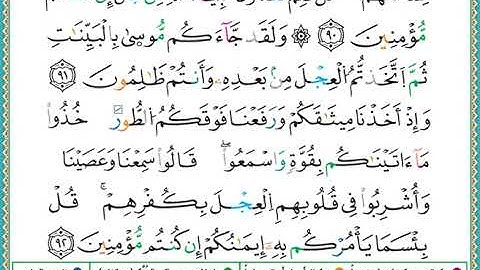 مُّؤْمِنِينَ ٩٠ ۞ وَلَقَدْ جَآءَكُم مُّوسَىٰ بِالْبَيِّنَاتِ
ثُمَّ اتَّخَذْتُمُ الْعِجْلَ مِنۢ بَعْدِهِۦ وَأَنتُمْ ظَالِمُونَ ٩١
وَإِذْ أَخَذْنَا مِيثَاقَكُمْ وَرَفَعْنَا فَوْقَكُمُ الطُّورَ خُذُوا
مَآ ءَاتَيْنَاكُم بِقُوَّةٍ وَاسْمَعُوا قَالُوا سَمِعْنَا وَعَصَيْنَا
وَأُشْرِبُوا فِي قُلُوبِهِمُ الْعِجْلَ بِكُفْرِهِمْ ۚ قُلْ
بِئْسَمَا يَأْمُرُكُم بِهِۦٓ إِيمَانُكُمْ إِن كُنتُم مُّؤْمِنِينَ ٩٢